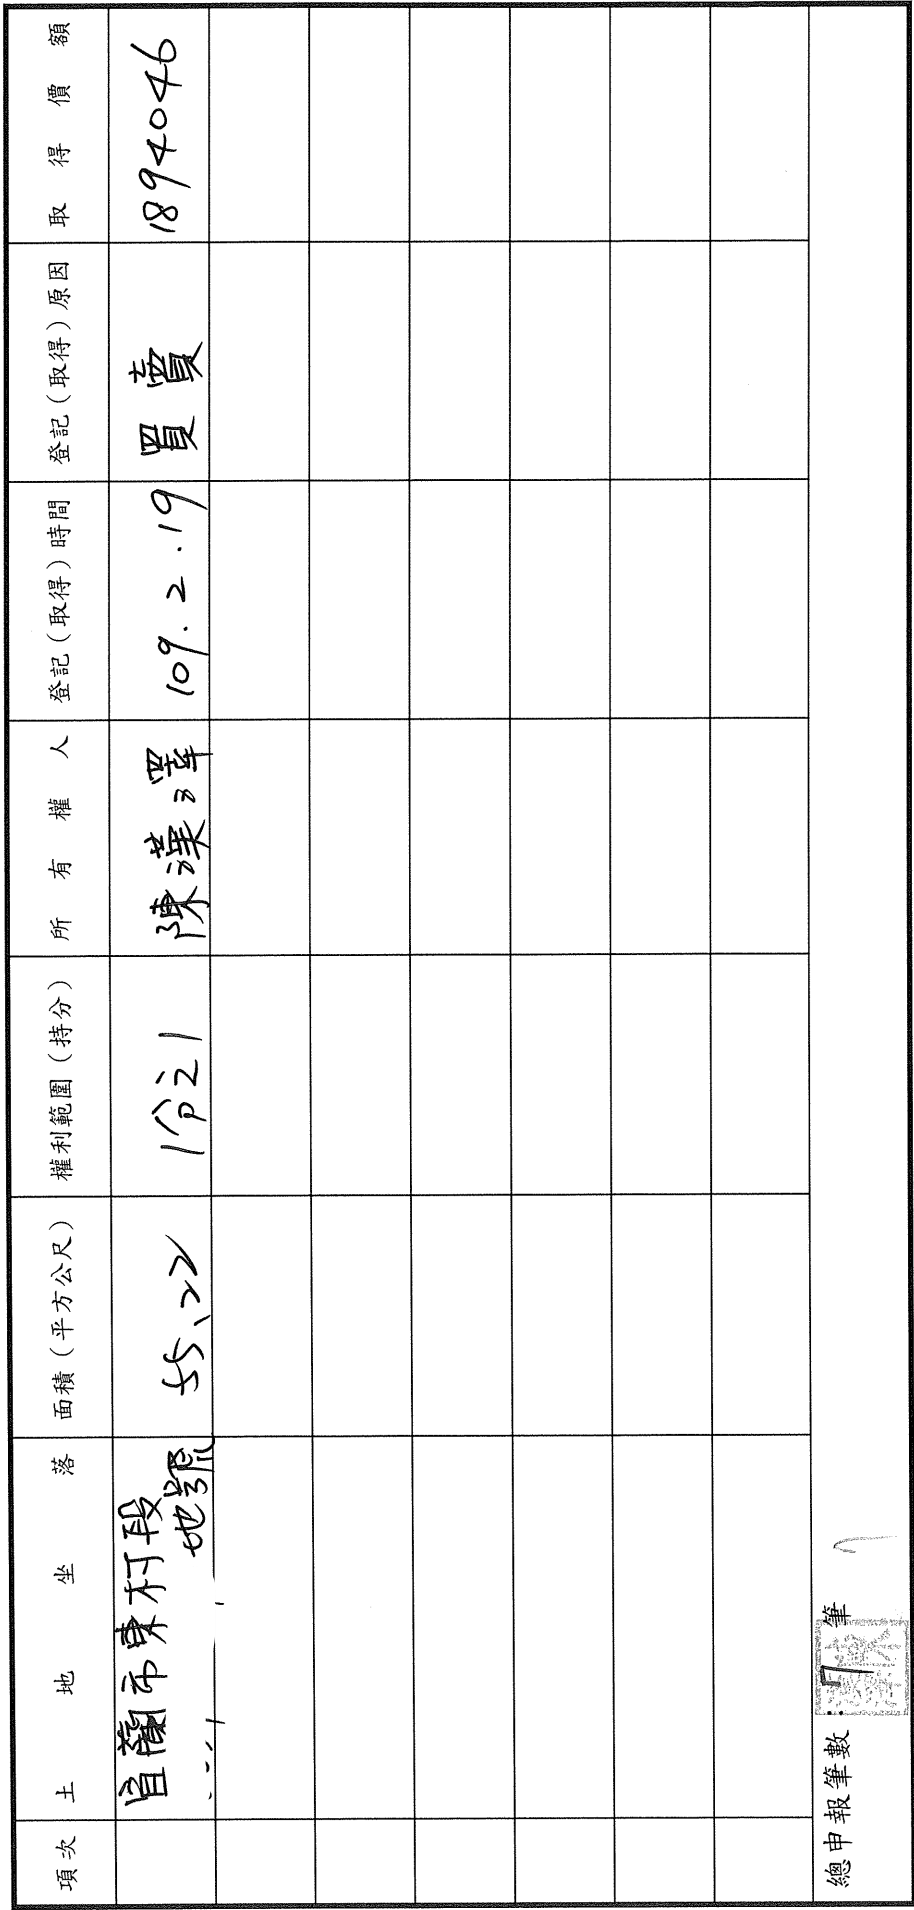 項次
土地坐落
面積(平方公尺)
權利範圍(持分)
所有權人
登記(取得)時間
登記(取得)原因
取得價額
宜蘭市東村段
地號
55.22
1分之1
陳漢澤
109.2.19
買賣
1894046
總申報筆數:7筆